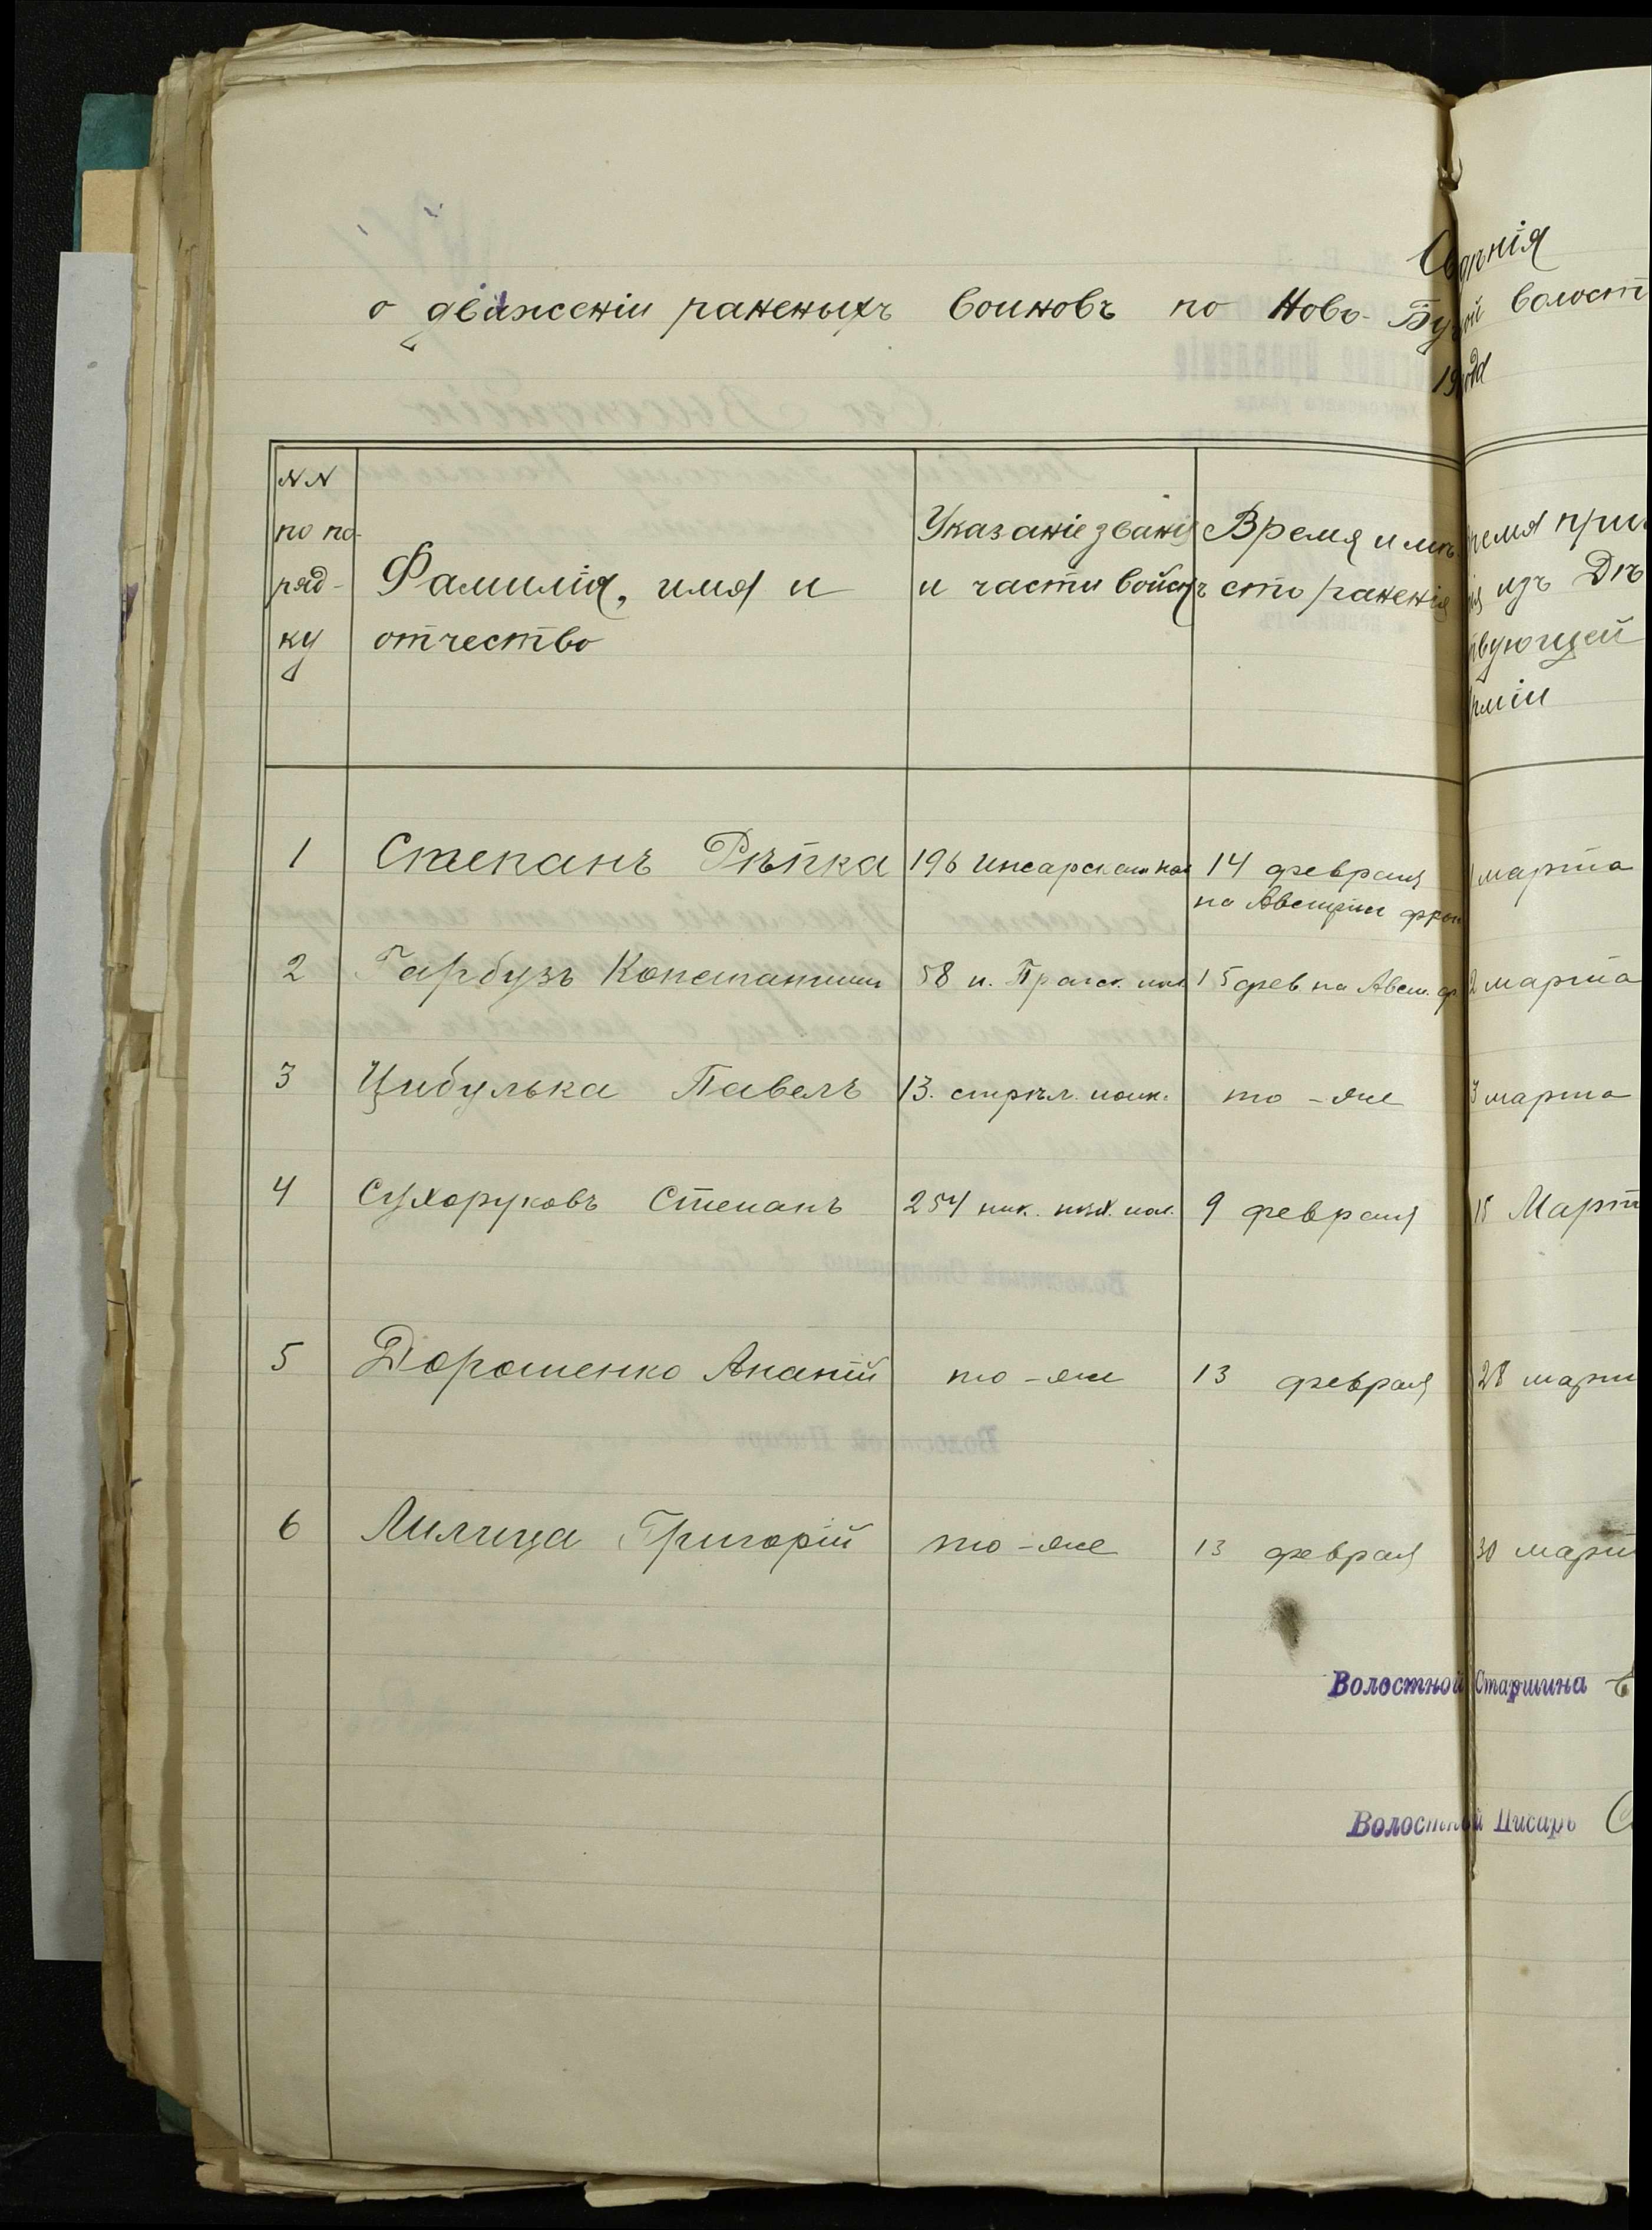 о движеніи раненыхъ воиновъ по Ново-
волост
NN
по по-
ряд-
ку
Фамилія, имя и
отчество
Указаніе званія
и части войскъ
Время и мѣ-
сто раненія
ремя при
изъ Дѣ
твующей
рміи
1 Степанъ Рѣпка 196 Инсарскаго пол 14 февраля марта
на Австрійск фрон
2 Гарбузъ Константинъ 58 п. Прагск. пол 15 фев на Авст. фр 2 марта
3 Цибулька Павелъ 13. стрѣл. полк. то-же 3 марта
4 Сухоруковъ Степанъ 254 ник. пѣх. пол. 9 февраля 18 Март
5 Дорошенко Ананій то-же 13 февраля 28 март
6 Лилица Григорій то-же 13 февраля 30 март
Волостной Старшина
Волостной Писарь